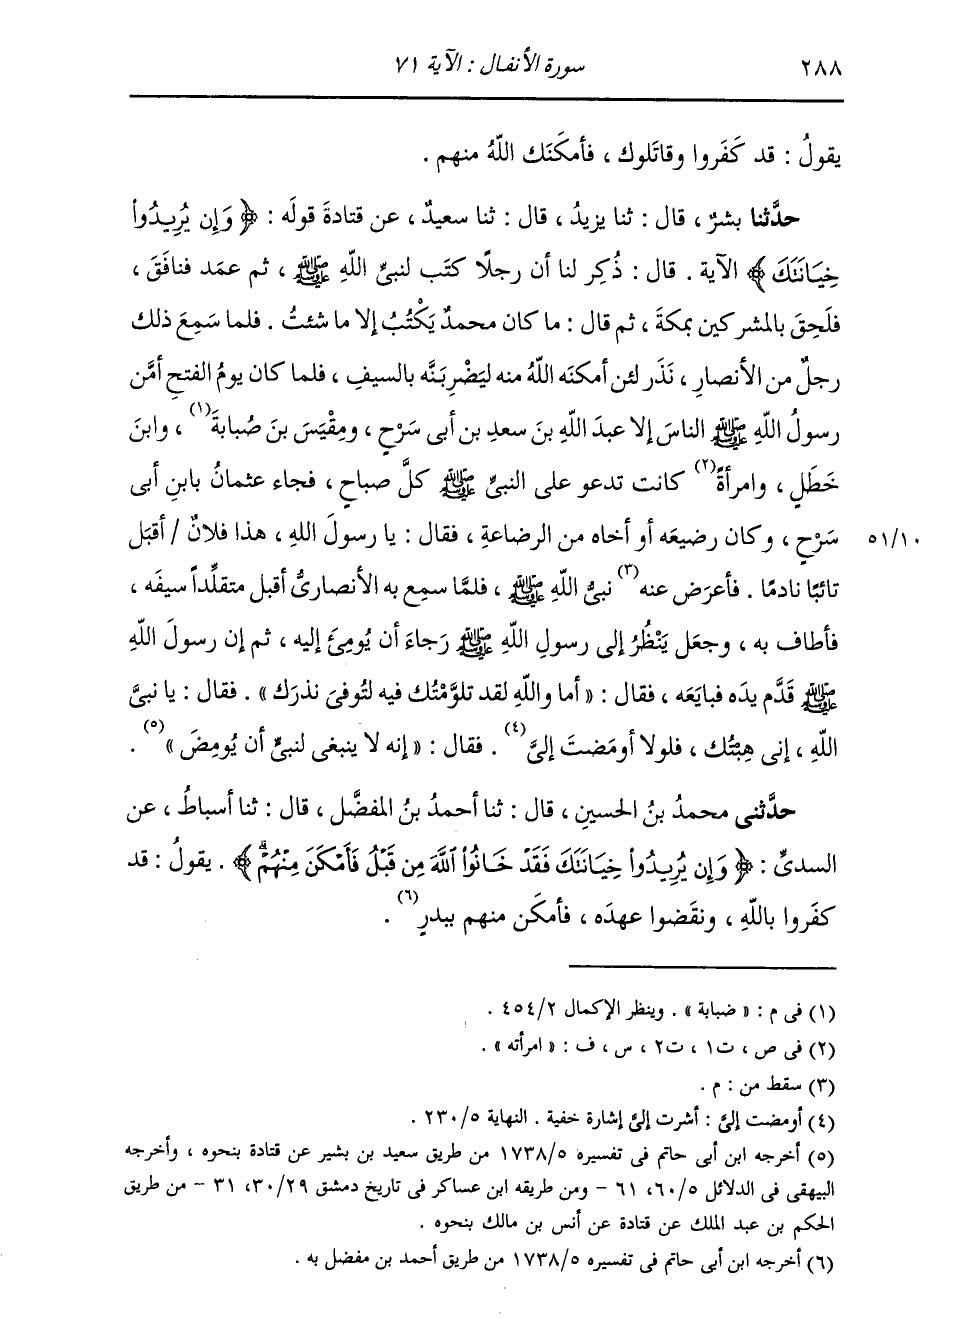 ٢٨٨ سورة الأنفال : الآية ٧١
يقولُ : قد كَفَروا وقاتَلوك ، فأمكَنَك اللهُ منهم .
حدَّثنا بشرٌ ، قال : ثنا يزيدُ ، قال : ثنا سعيدٌ ، عن قتادةَ قولَه : ﴿ وَإِن يُرِيدُوا
خِيَانَتَكَ ﴾ الآية . قال : ذُكِر لنا أن رجلًا كتَب لنبىِّ اللهِ ﷺ ، ثم عمَد فنافَقَ ،
فلَحِقَ بالمشركين بمكةَ ، ثم قال : ما كان محمدٌ يَكْتُبُ إلا ما شئتُ . فلما سَمِعَ ذلك
رجلٌ من الأنصارِ ، نَذَر لئن أمكنَه اللهُ منه ليَضْرِبَنَّه بالسيفِ ، فلما كان يومُ الفتحِ أمَّن
رسولُ اللهِ ﷺ الناسَ إلا عبدَ اللهِ بنَ سعدِ بنِ أبى سَرْحٍ ، ومِقْيَسَ بنَ صُبابةَ(١) ، وابنَ
خَطَلٍ ، وامرأةً(٢) كانت تدعو على النبىِّ ﷺ كلَّ صباحٍ ، فجاء عثمانُ بابنِ أبى
سَرْحٍ ، وكان رضيعَه أو أخاه من الرضاعةِ ، فقال : يا رسولَ اللهِ ، هذا فلانٌ / أقبَل ٥١/١٠
تائبًا نادمًا . فأعرَض عنه(٣) نبىُّ اللهِ ﷺ ، فلمَّا سمِع به الأنصارىُّ أقبل متقلِّدًا سيفَه ،
فأطاف به ، وجعَل يَنْظُرُ إلى رسولِ اللهِ ﷺ رَجاءَ أن يُومِئَ إليه ، ثم إن رسولَ اللهِ
ﷺ قَدَّم يدَه فبايَعَه ، فقال : « أما واللهِ لقد تلوَّمْتُك فيه لتُوفىَ نذرَك » . فقال : يا نبىَّ
اللهِ ، إنى هِبْتُك ، فلولا أومَضتَ إلىَّ(٤) . فقال : « إنه لا ينبغى لنبىٍّ أن يُومِضَ »(٥) .
حدَّثنى محمدُ بنُ الحسينِ ، قال : ثنا أحمدُ بنُ المفضَّلِ ، قال : ثنا أسباطُ ، عن
السدىِّ : ﴿ وَإِن يُرِيدُوا خِيَانَتَكَ فَقَدْ خَانُوا ٱللَّهَ مِن قَبْلُ فَأَمْكَنَ مِنْهُمْ ﴾ . يقولُ : قد
كفَروا باللهِ ، ونقَضوا عهدَه ، فأمكَن منهم ببدرٍ(٦) .
(١) فى م : « ضبابة » . وينظر الإكمال ٤٥٤/٢ .
(٢) فى ص ، ت١ ، ت٢ ، س ، ف : « امرأته » .
(٣) سقط من : م .
(٤) أومضت إلىَّ : أشرت إلىَّ إشارة خفية . النهاية ٢٣٠/٥ .
(٥) أخرجه ابن أبى حاتم فى تفسيره ١٧٣٨/٥ من طريق سعيد بن بشير عن قتادة بنحوه ، وأخرجه
البيهقى فى الدلائل ٦٠/٥، ٦١ – ومن طريقه ابن عساكر فى تاريخ دمشق ٣٠/٢٩، ٣١ – من طريق
الحكم بن عبد الملك عن قتادة عن أنس بن مالك بنحوه .
(٦) أخرجه ابن أبى حاتم فى تفسيره ١٧٣٨/٥ من طريق أحمد بن مفضل به .